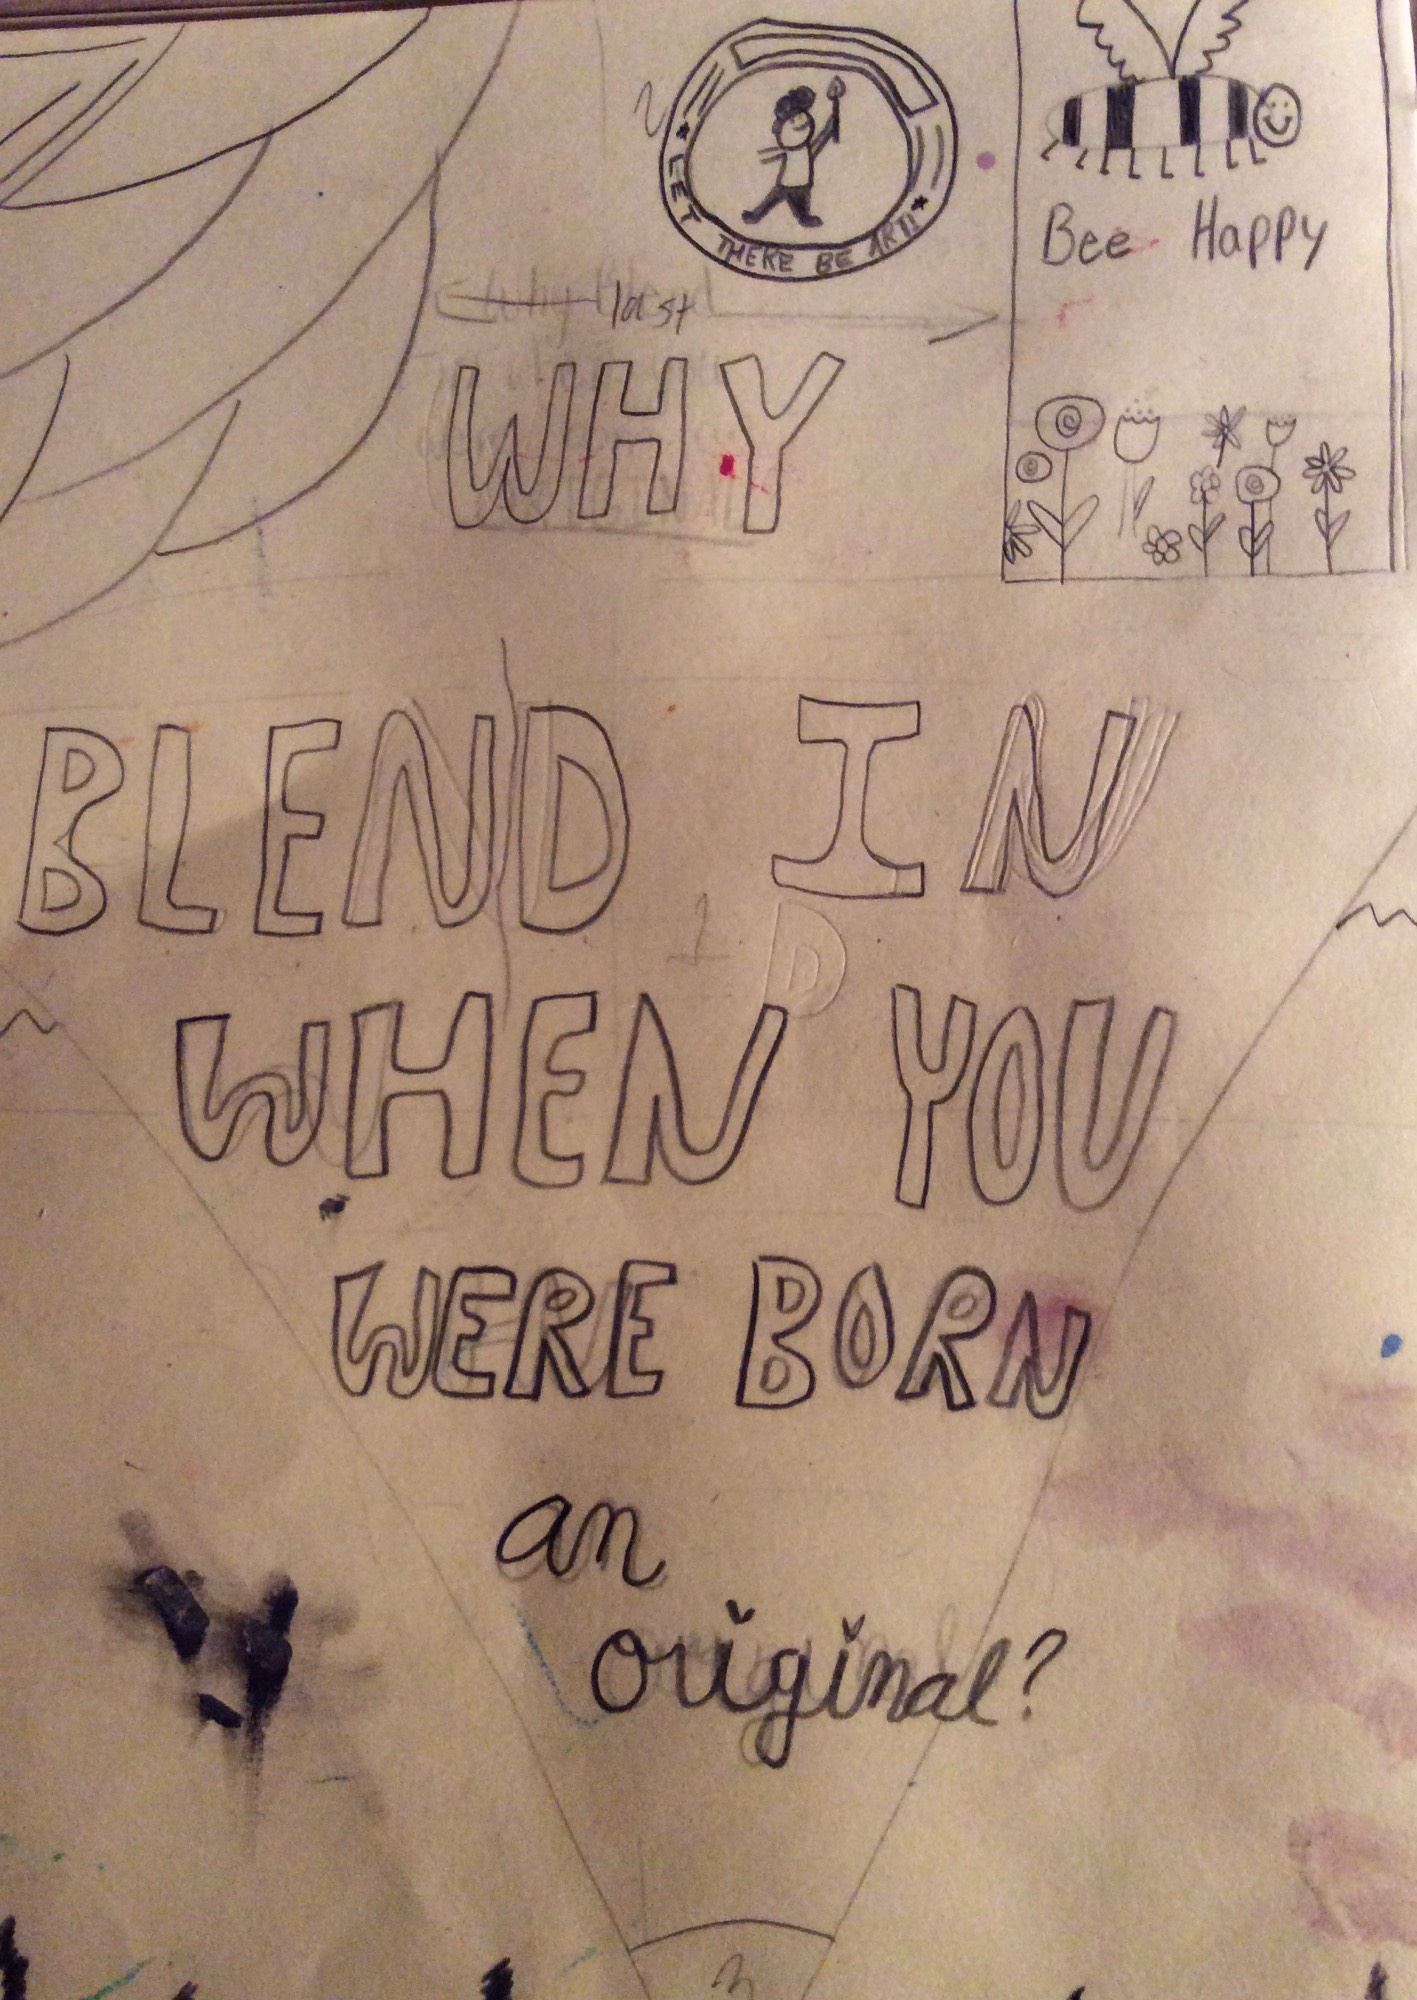 LET THERE BE ART!
Bee Happy
last
WHY
BLEND IN
1
D
WHEN YOU
WERE BORN
an
original?
3